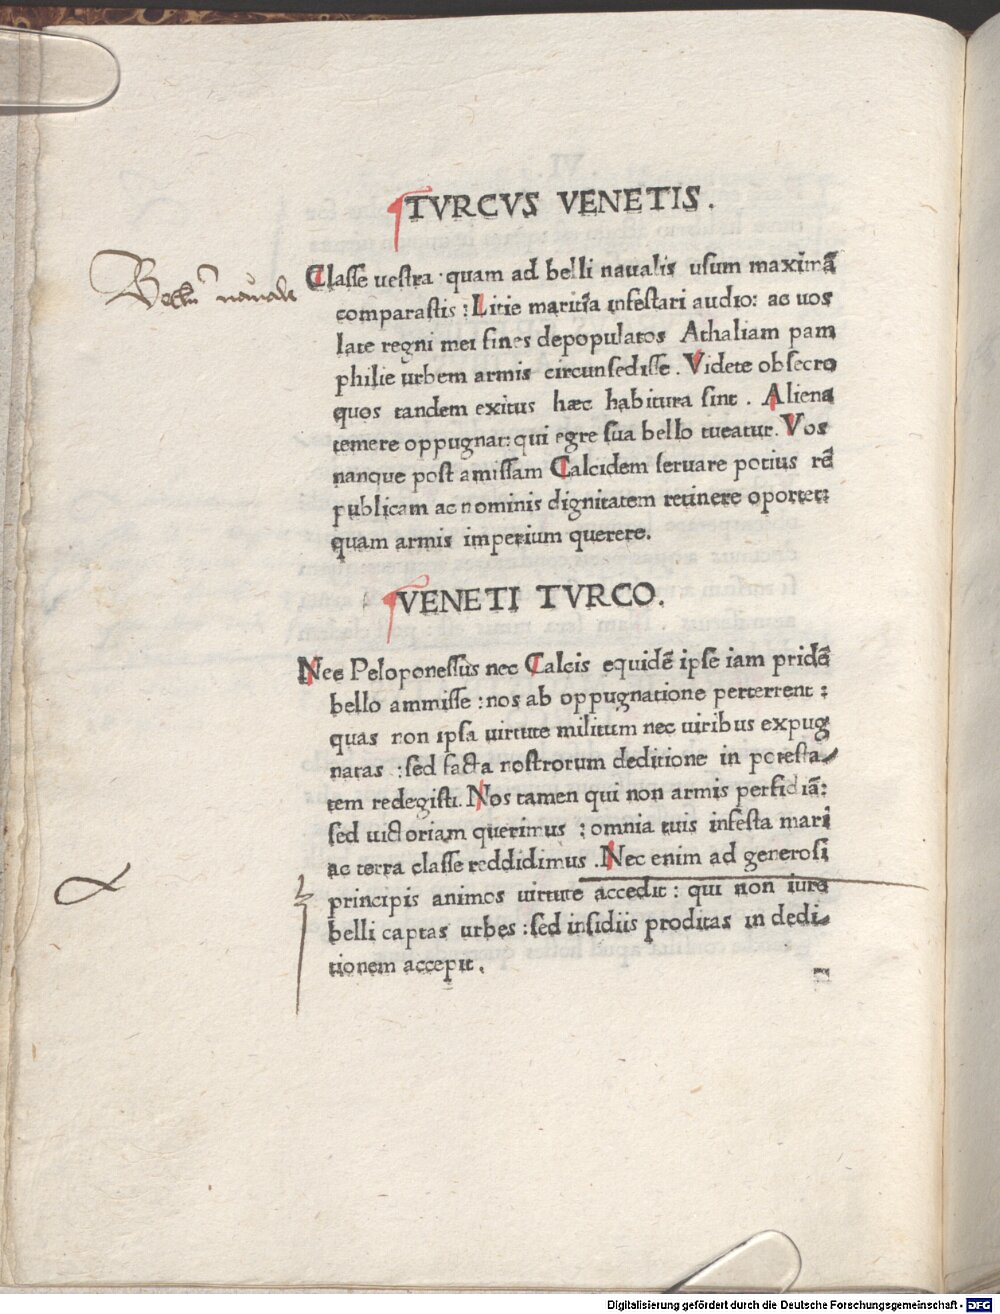 TVRCVS VENETIS.
Bellū nauale
Classe vestra · quam ad belli naualis usum maximā
comparastis : Litie maritīa infestari audio: ac uos
late regni mei fines depopulatos Athaliam pam
philie urbem armis circunsedisse . Videte obsecro
quos tandem exitus hæc habitura sint . Aliena
temere oppugnat: qui egre sua bello tueatur. Vos
nanque post amissam Calcidem seruare potius rē
publicam ac nominis dignitatem retinere oportet:
quam armis imperium querere.
VENETI TVRCO.
Nec Peloponessus nec Calcis equidē ipse iam pridē
bello ammisse : nos ab oppugnatione perterrent :
quas non ipsa uirtute militum nec uiribus expug
natas : sed facta nostrorum deditione in potesta-
tem redegisti. Nos tamen qui non armis perfidiā:
sed uictoriam querimus : omnia tuis infesta mari
ac terra classe reddidimus . Nec enim ad generosi
principis animos uirtute accedit : qui non iure
belli captas urbes : sed insidiis proditas in dedi-
tionem accepit .
Digitalisierung gefördert durch die Deutsche Forschungsgemeinschaft - DFG